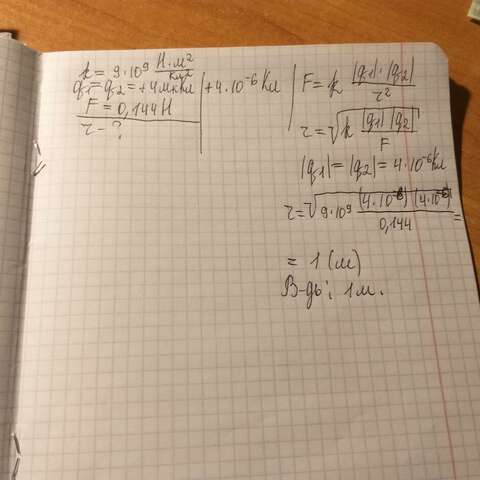 k = 9·10⁹ Н·м²/Кл²
q1 = q2 = +4мкКл | +4·10⁻⁶ Кл
F = 0,144 Н
r - ?
F = k |q1|·|q2| / r²
r = √(k |q1| |q2| / F)
|q1| = |q2| = 4·10⁻⁶ Кл
r = √(9·10⁹ (4·10⁻⁶) (4·10⁻⁶) / 0,144) =
= 1 (м)
В-дь: 1 м.